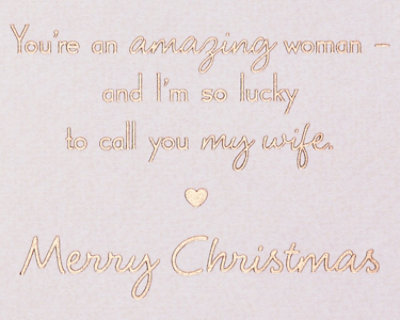 You're an amazing woman –
and I'm so lucky
to call you my wife.
Merry Christmas